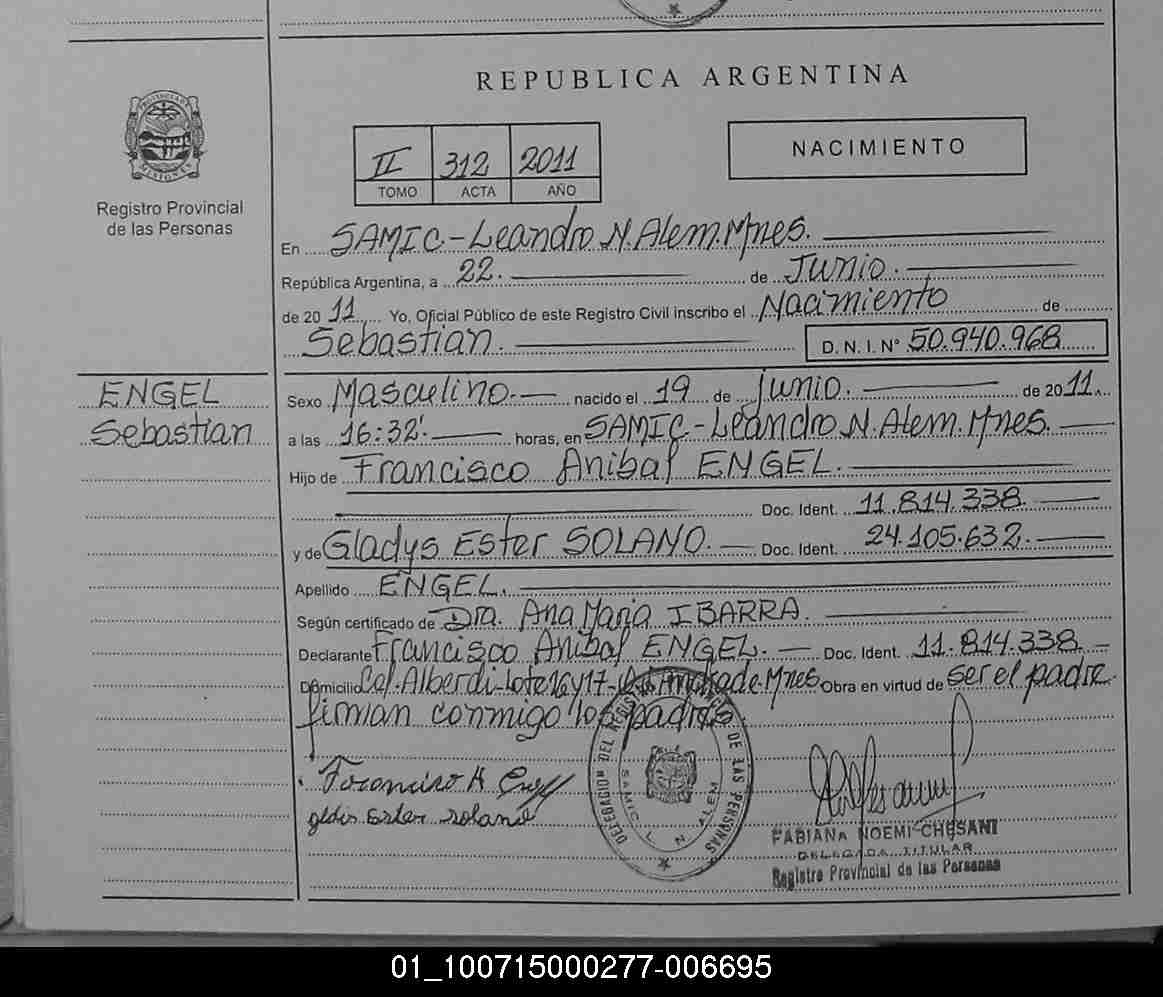 REPUBLICA ARGENTINA
PROVINCIA DE
MISIONES
Registro Provincial
de las Personas
II 312 2011
TOMO ACTA AÑO
NACIMIENTO
En SAMIC-Leandro N. Alem. Mnes.
República Argentina, a 22. de Junio.
de 2011 Yo, Oficial Público de este Registro Civil inscribo el Nacimiento de
Sebastian. D. N. I. Nº 50.940.968
ENGEL
Sebastian
Sexo Masculino. nacido el 19 de junio. de 2011.
a las 16:32'. horas, en SAMIC-Leandro N. Alem. Mnes.
Hijo de Francisco Anibal ENGEL.
Doc. Ident. 11.814.338.
y de Gladys Ester SOLANO. Doc. Ident. 24.105.632.
Apellido ENGEL.
Según certificado de Dra. Ana Maria IBARRA.
Declarante Francisco Anibal ENGEL. Doc. Ident. 11.814.338
Domicilio Col. Alberdi-lote 16 y 17- Andrade Mnes Obra en virtud de ser el padre.
firman conmigo los padres
DELEGACION DEL REGISTRO DE LAS PERSONAS
SAMIC L. N. ALEM
Francisco A
Ester Solano
FABIANA NOEMI CHESANI
DELEGADA TITULAR
Registro Provincial de las Personas
01_100715000277-006695